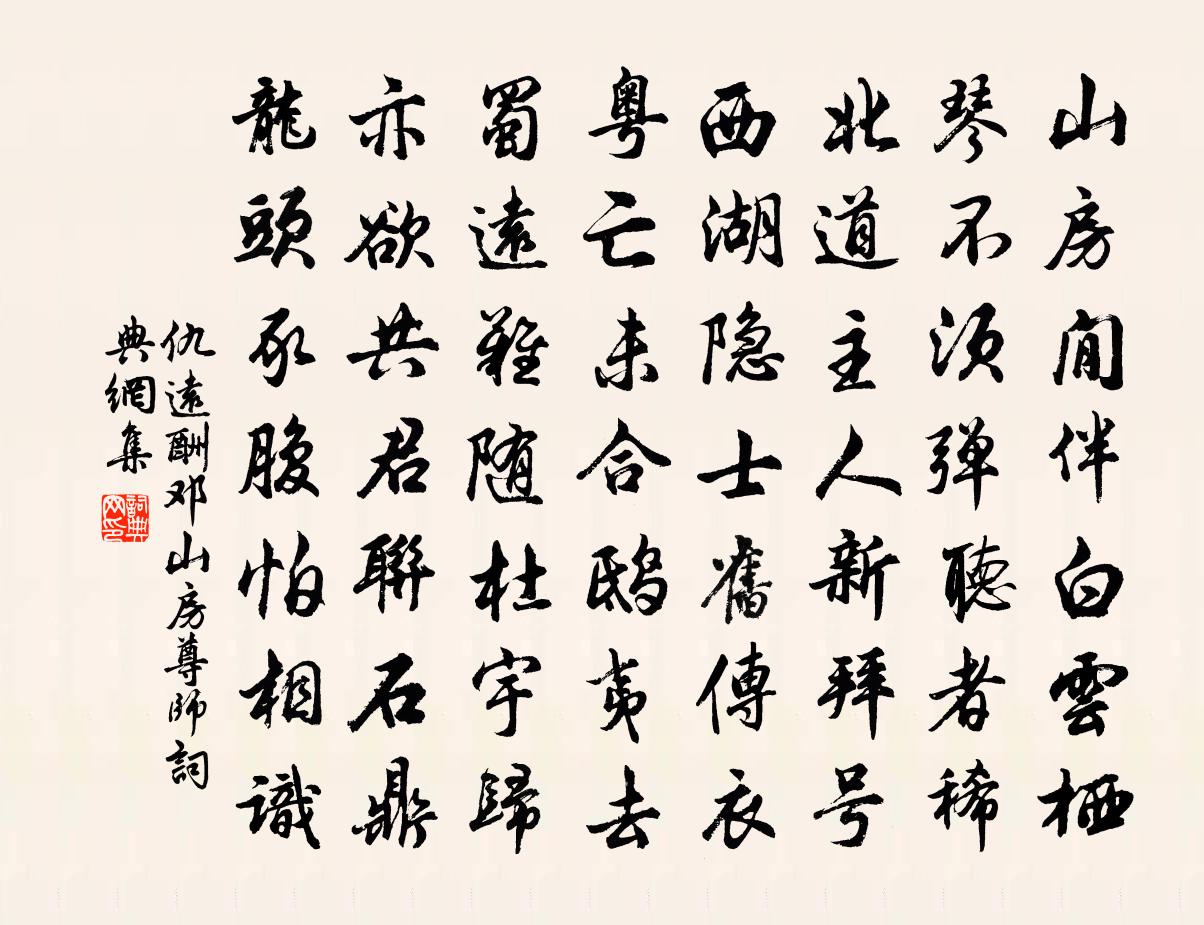 山房閒伴白雲栖
琴不須弹聽者稀
北道主人新拜号
西湖隐士舊傳衣
粤亡未合鸱夷去
蜀遠難随杜宇歸
亦欲共君聯石鼎
龍頭豕腹怕相識
仇遠酬邓山房尊師詞
典網集
詞典
网印